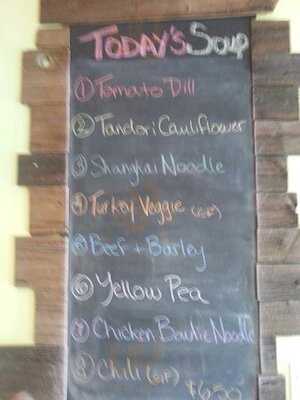 TODAY'S SOUP
① Tomato Dill
② Tandori Cauliflower
③ Shanghai Noodle
④ Turkey Veggie (GF)
⑤ Beef + Barley
⑥ Yellow Pea
⑦ Chicken Noodle
⑧ Chili (GF)
$6.50